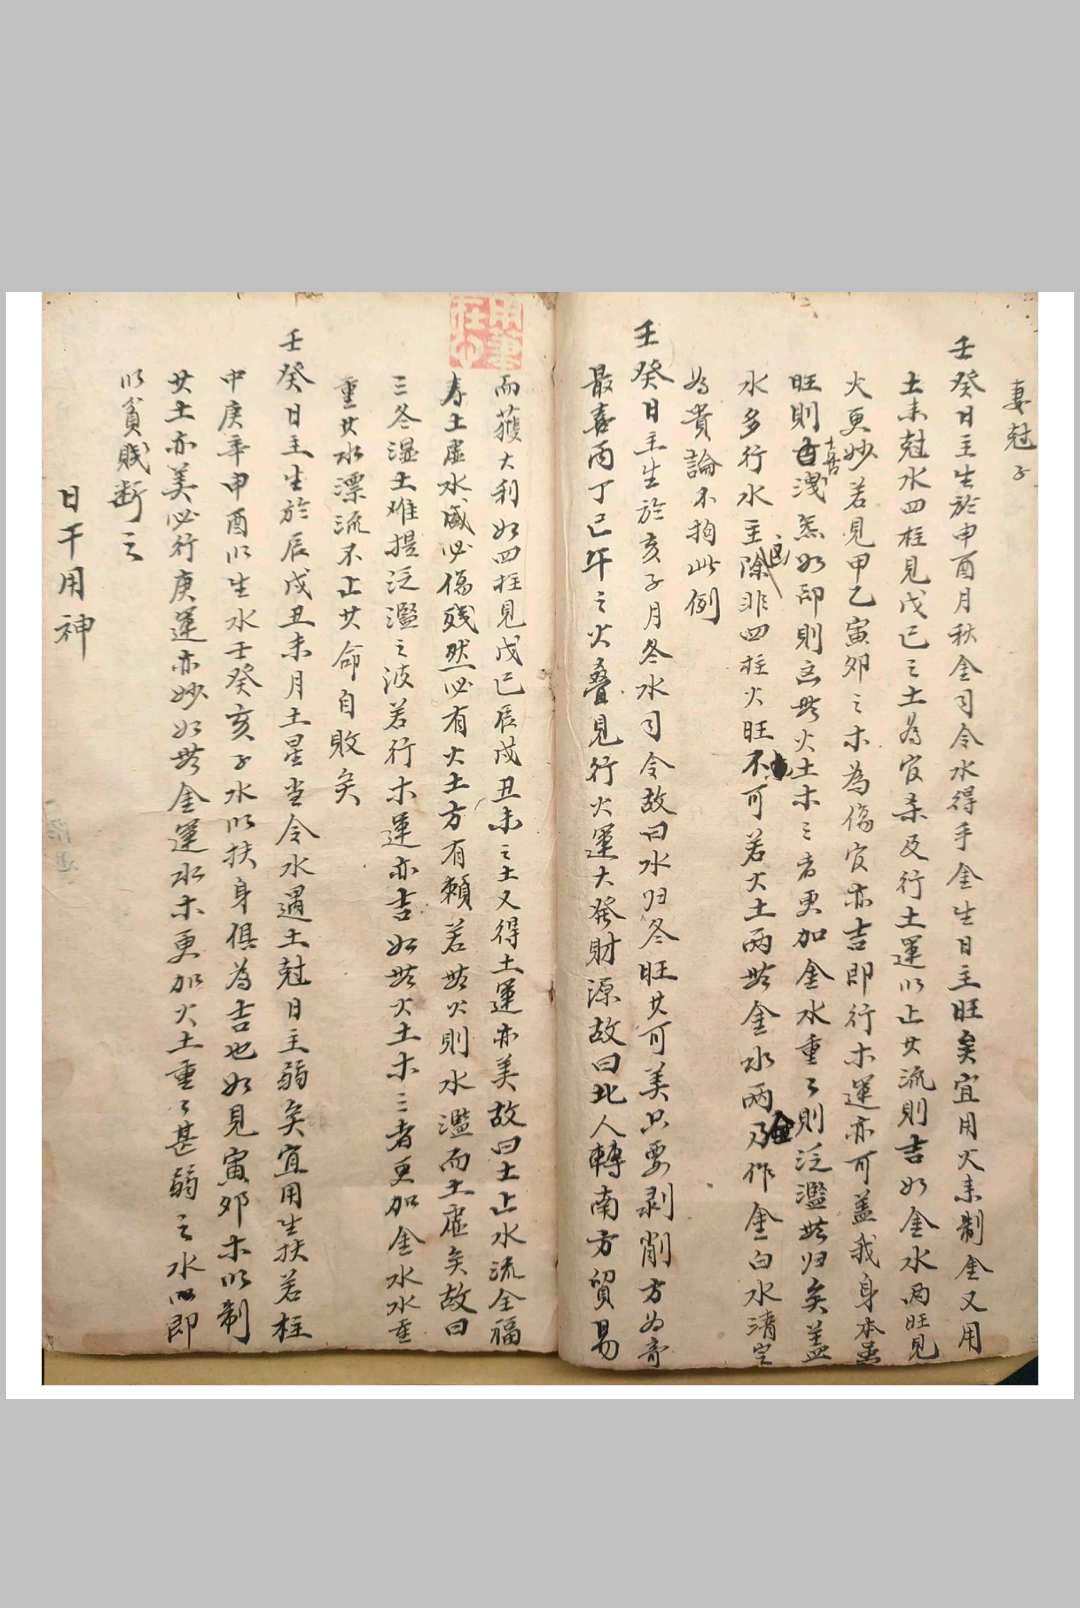 妻尅子
壬癸日主生於申酉月秋金司令水得手金生日主旺矣宜用火来制金又用
土来尅水四柱見戊己之土為官杀及行土運以止其流則吉如金水两旺見
火更妙若見甲乙寅卯之木為傷官亦吉即行木運亦可盖我身本
旺則喜洩炁如印則忌無火土木三者更加金水重々則泛濫無归矣盖
水多行水主除非四柱火旺不可若火土两無金水两作金白水清定
為貴論不拘此例
壬癸日主生於亥子月冬水司令故曰水归冬旺其可美只要剥削方为奇
最喜丙丁巳午之火叠見行火運大發財源故曰北人轉南方貿易
而獲大利如四柱見戊己辰戌丑未之土又得土運亦美故曰土止水流全福
寿土虛水盛必傷残然必有火土方有賴若無火則水濫而土虛矣故曰
三冬湿土难提泛濫之波若行木運亦吉如無火土木三者更加金水水重
重其水漂流不止其命自敗矣
壬癸日主生於辰戌丑未月土星当令水遇土尅日主弱矣宜用生扶若柱
中庚辛申酉以生水壬癸亥子水以扶身俱為吉也如見寅卯木以制
其土亦美必行庚運亦妙如無金運水木更加火土重々甚弱之水即
以貧贱断之
日干用神
用筆在心